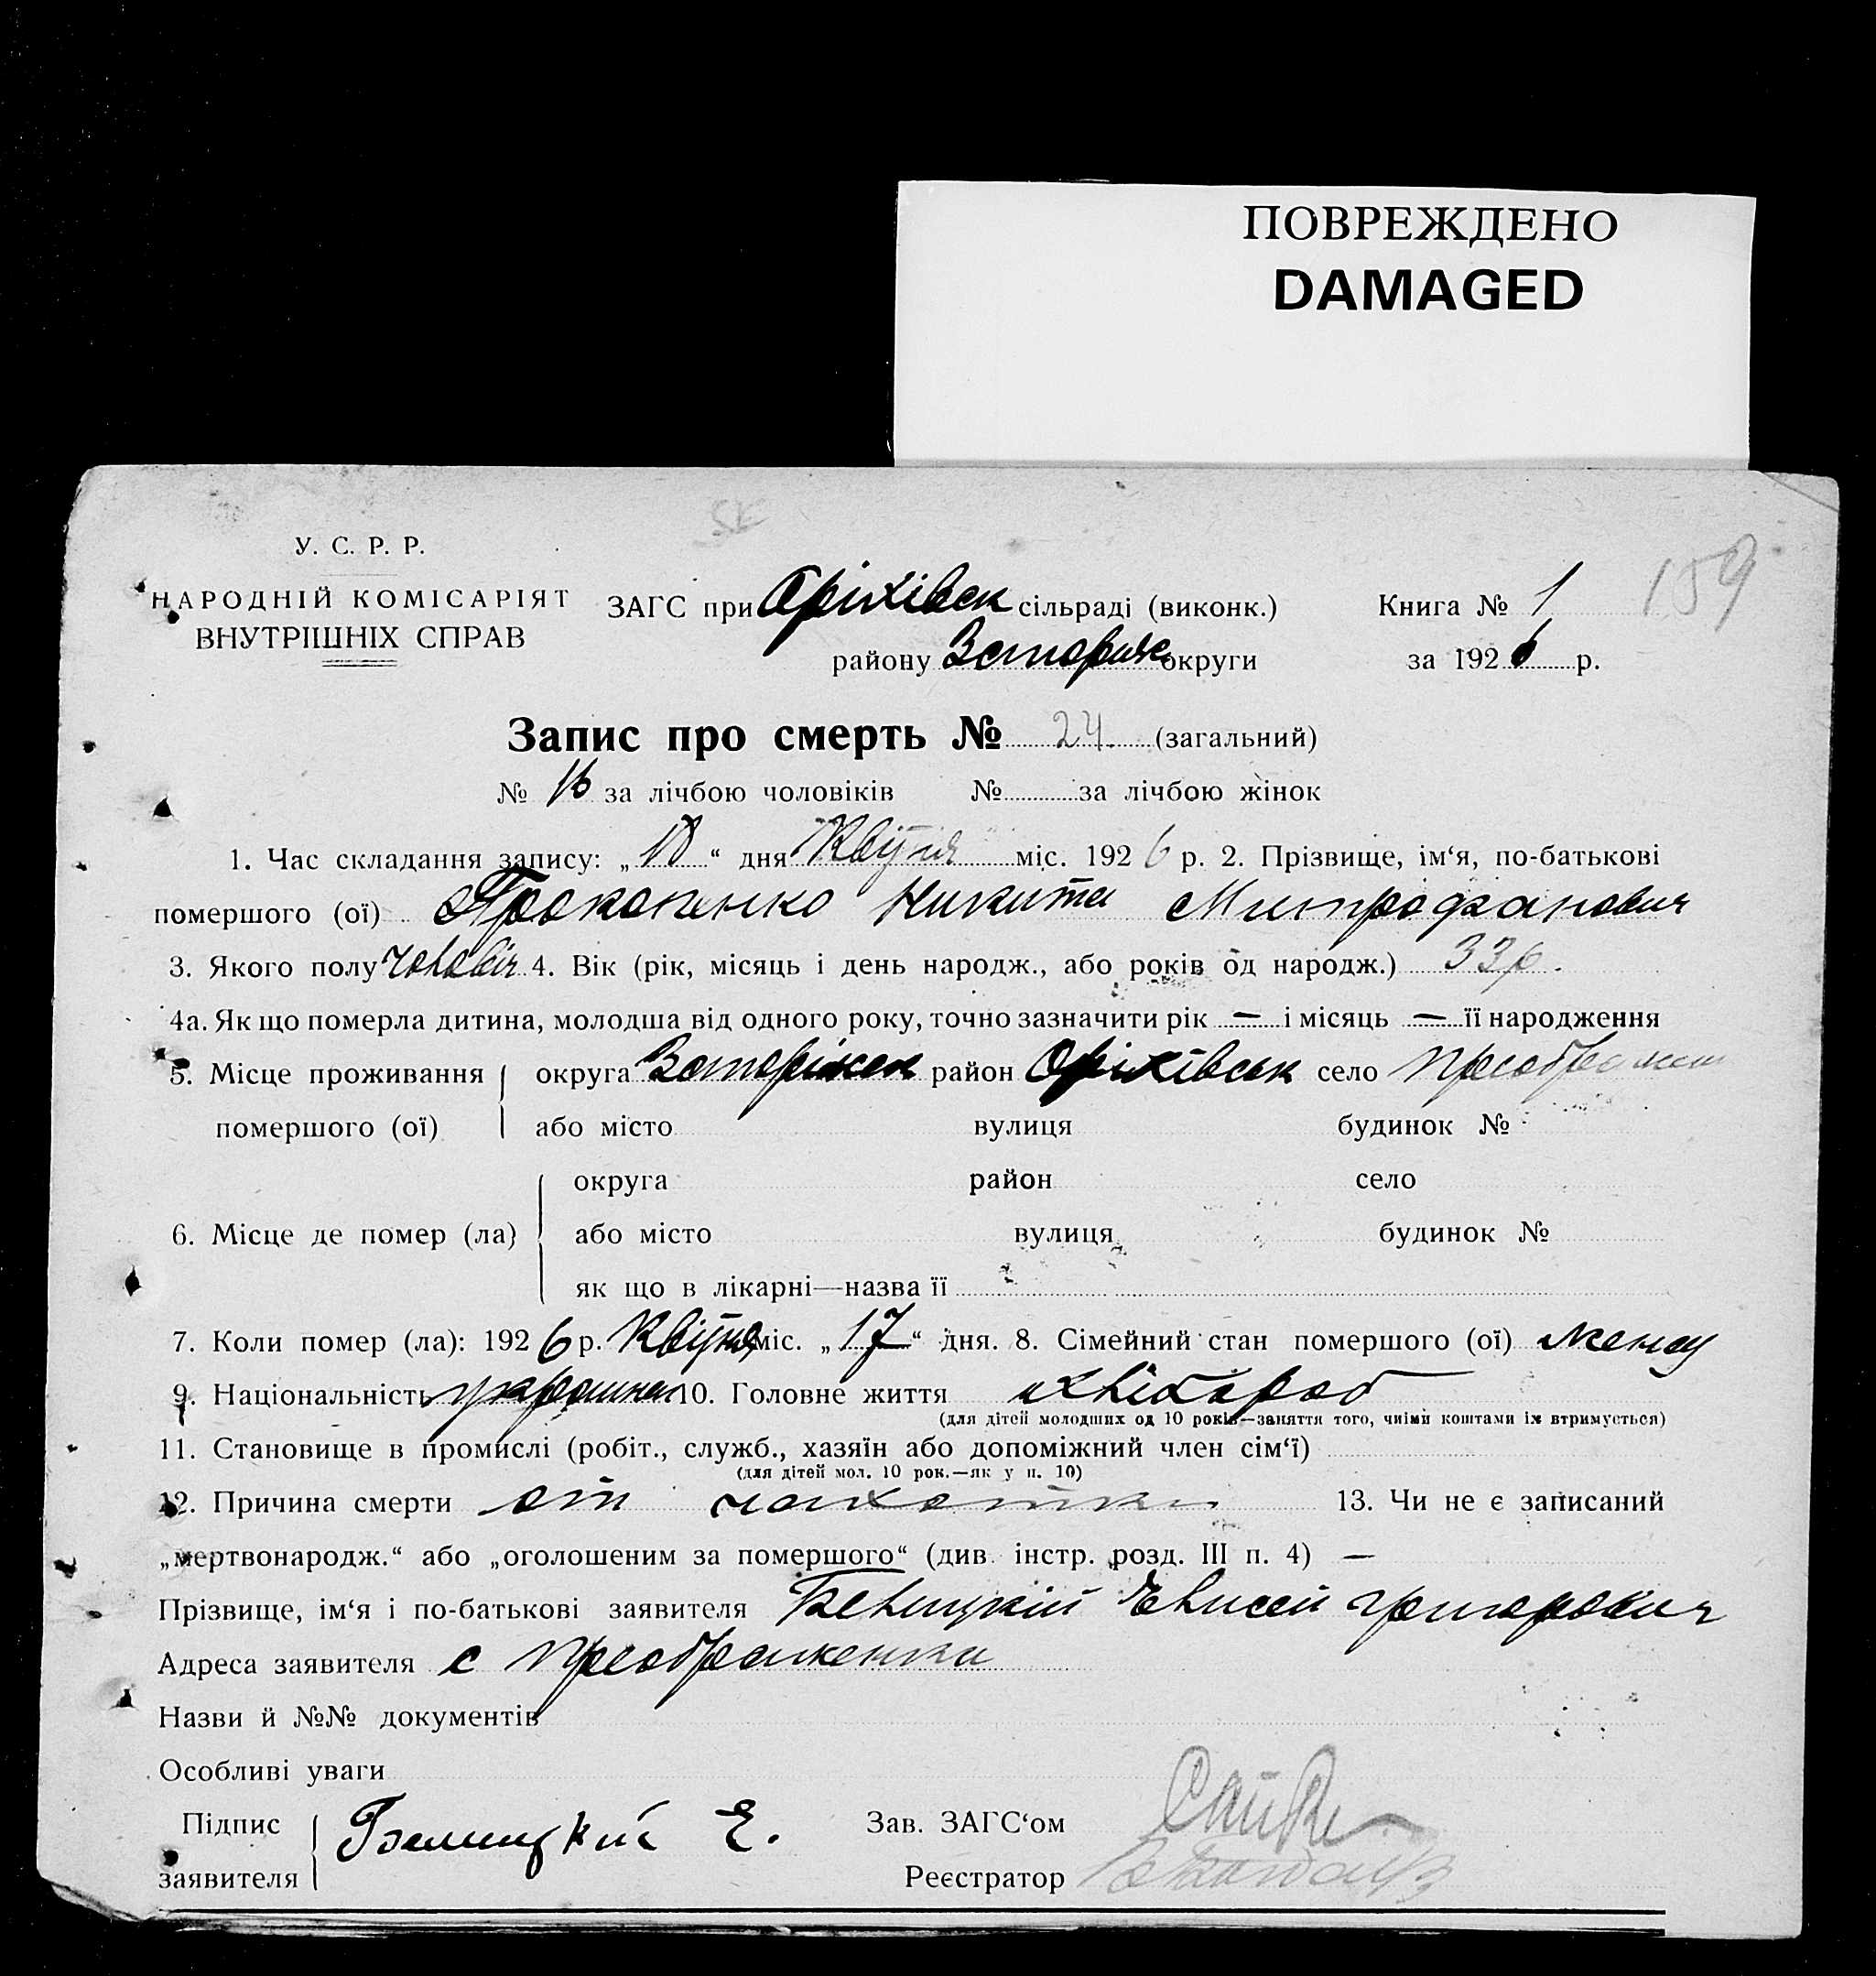 ПОВРЕЖДЕНО
DAMAGED
159
У. С. Р. Р.
НАРОДНІЙ КОМІСАРІЯТ
ВНУТРІШНІХ СПРАВ
ЗАГС при Оріхівск сільраді (виконк.) Книга № 1
району Запоріж округи за 1926 р.
Запис про смерть № 24. (загальний)
№ 16 за лічбою чоловіків № за лічбою жінок
1. Час складання запису: „18“ дня Квітня міс. 1926 р. 2. Прізвище, ім‘я, по-батькові
помершого (ої) Прокопенко Никита Митрофанович
3. Якого полу чоловіч 4. Вік (рік, місяць і день народж., або років од народж.) 33 р.
4а. Як що померла дитина, молодша від одного року, точно зазначити рік — і місяць — її народження
5. Місце проживання округа Запоріжск район Оріхівськ село Преображен
помершого (ої) або місто вулиця будинок №
округа район село
6. Місце де помер (ла) або місто вулиця будинок №
як що в лікарні—назва її
7. Коли помер (ла): 1926 р. Квітня міс. „17“ дня. 8. Сімейний стан помершого (ої)
9. Національність 10. Головне життя хлібороб
(для дітей молодших од 10 років—заняття того, чиїми коштами їх втримується)
11. Становище в промислі (робіт., служб., хазяїн або допоміжний член сім‘ї)
(для дітей мол. 10 рок.—як у п. 10)
12. Причина смерти от чахотки 13. Чи не є записаний
„мертвонародж.“ або „оголошеним за помершого“ (див. інстр. розд. III п. 4) —
Прізвище, ім‘я і по-батькові заявителя Белицкій Елисей Григорович
Адреса заявителя с Преображенки
Назви й №№ документів
Особливі уваги
Підпис Белицкий Е. Зав. ЗАГС‘ом
заявителя Реєстратор